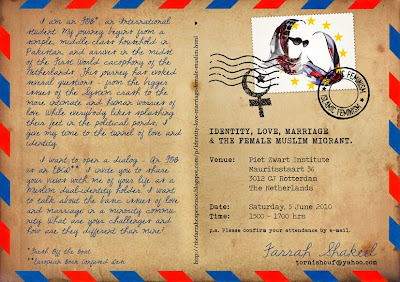 I am an FOB*, an International
student. My journey begins from a
simple, middle-class household in
Pakistan, and arrives in the midst
of the First World cacophony of the
Netherlands. This journey has evoked
several questions - from the bigger
issues of the system crash to the
more intimate and human worries of
love. While everybody likes splashing
their feet in the political ponds, I
give my time to the tunnel of love and
identity.
I want to open a dialog - An FOB
an EBCD**. I invite you to share
your views with me of your life as a
Muslim dual-identity holder. I want
to talk about the basic issues of love
and marriage in a minority commu-
nity. What are your challenges and
how are they different than mine?
*Fresh By the Boat
**European Born Confused Desi
ISLAMIC FEMINISM
ISLAMIC FEMINISM
IDENTITY, LOVE, MARRIAGE
& THE FEMALE MUSLIM MIGRANT.
Venue: Piet Zwart Institute
Mauritsstaart 36
3012 CJ Rotterdam
The Netherlands
Date: Saturday, 5 June 2010
Time: 1500 - 1700 hrs
p.s. Please confirm your attendance by e-mail.
Farrah Shakeel
tornishouf@yahoo.com